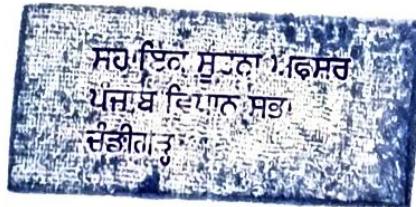 ਸਹਾਇਕ ਸੂਚਨਾ ਅਫਸਰ
ਪੰਜਾਬ ਵਿਧਾਨ ਸਭਾ
ਚੰਡੀਗੜ੍ਹ